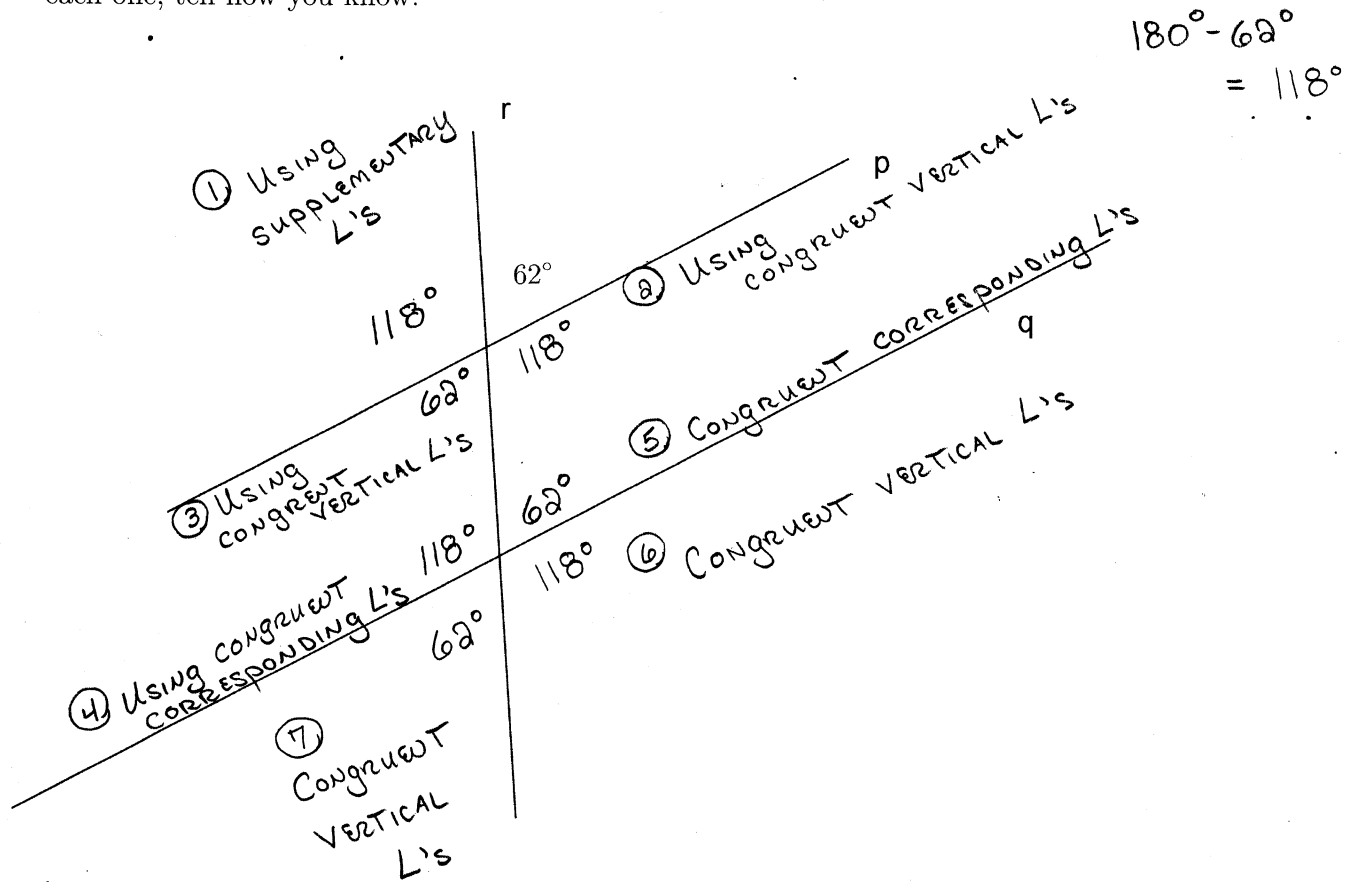 each one, tell how you know.
180° - 62°
= 118°
r
① USING
SUPPLEMENTARY
L'S
p
62°
② USING
CONGRUENT VERTICAL L'S
118°
118°
62°
q
③ USING
CONGRENT
VERTICAL L'S
⑤ CONGRUENT CORRESPONDING L'S
62°
118°
118°
⑥ CONGRUENT VERTICAL L'S
④ USING CONGRUENT
CORRESPONDING L'S
62°
⑦
CONGRUENT
VERTICAL
L'S